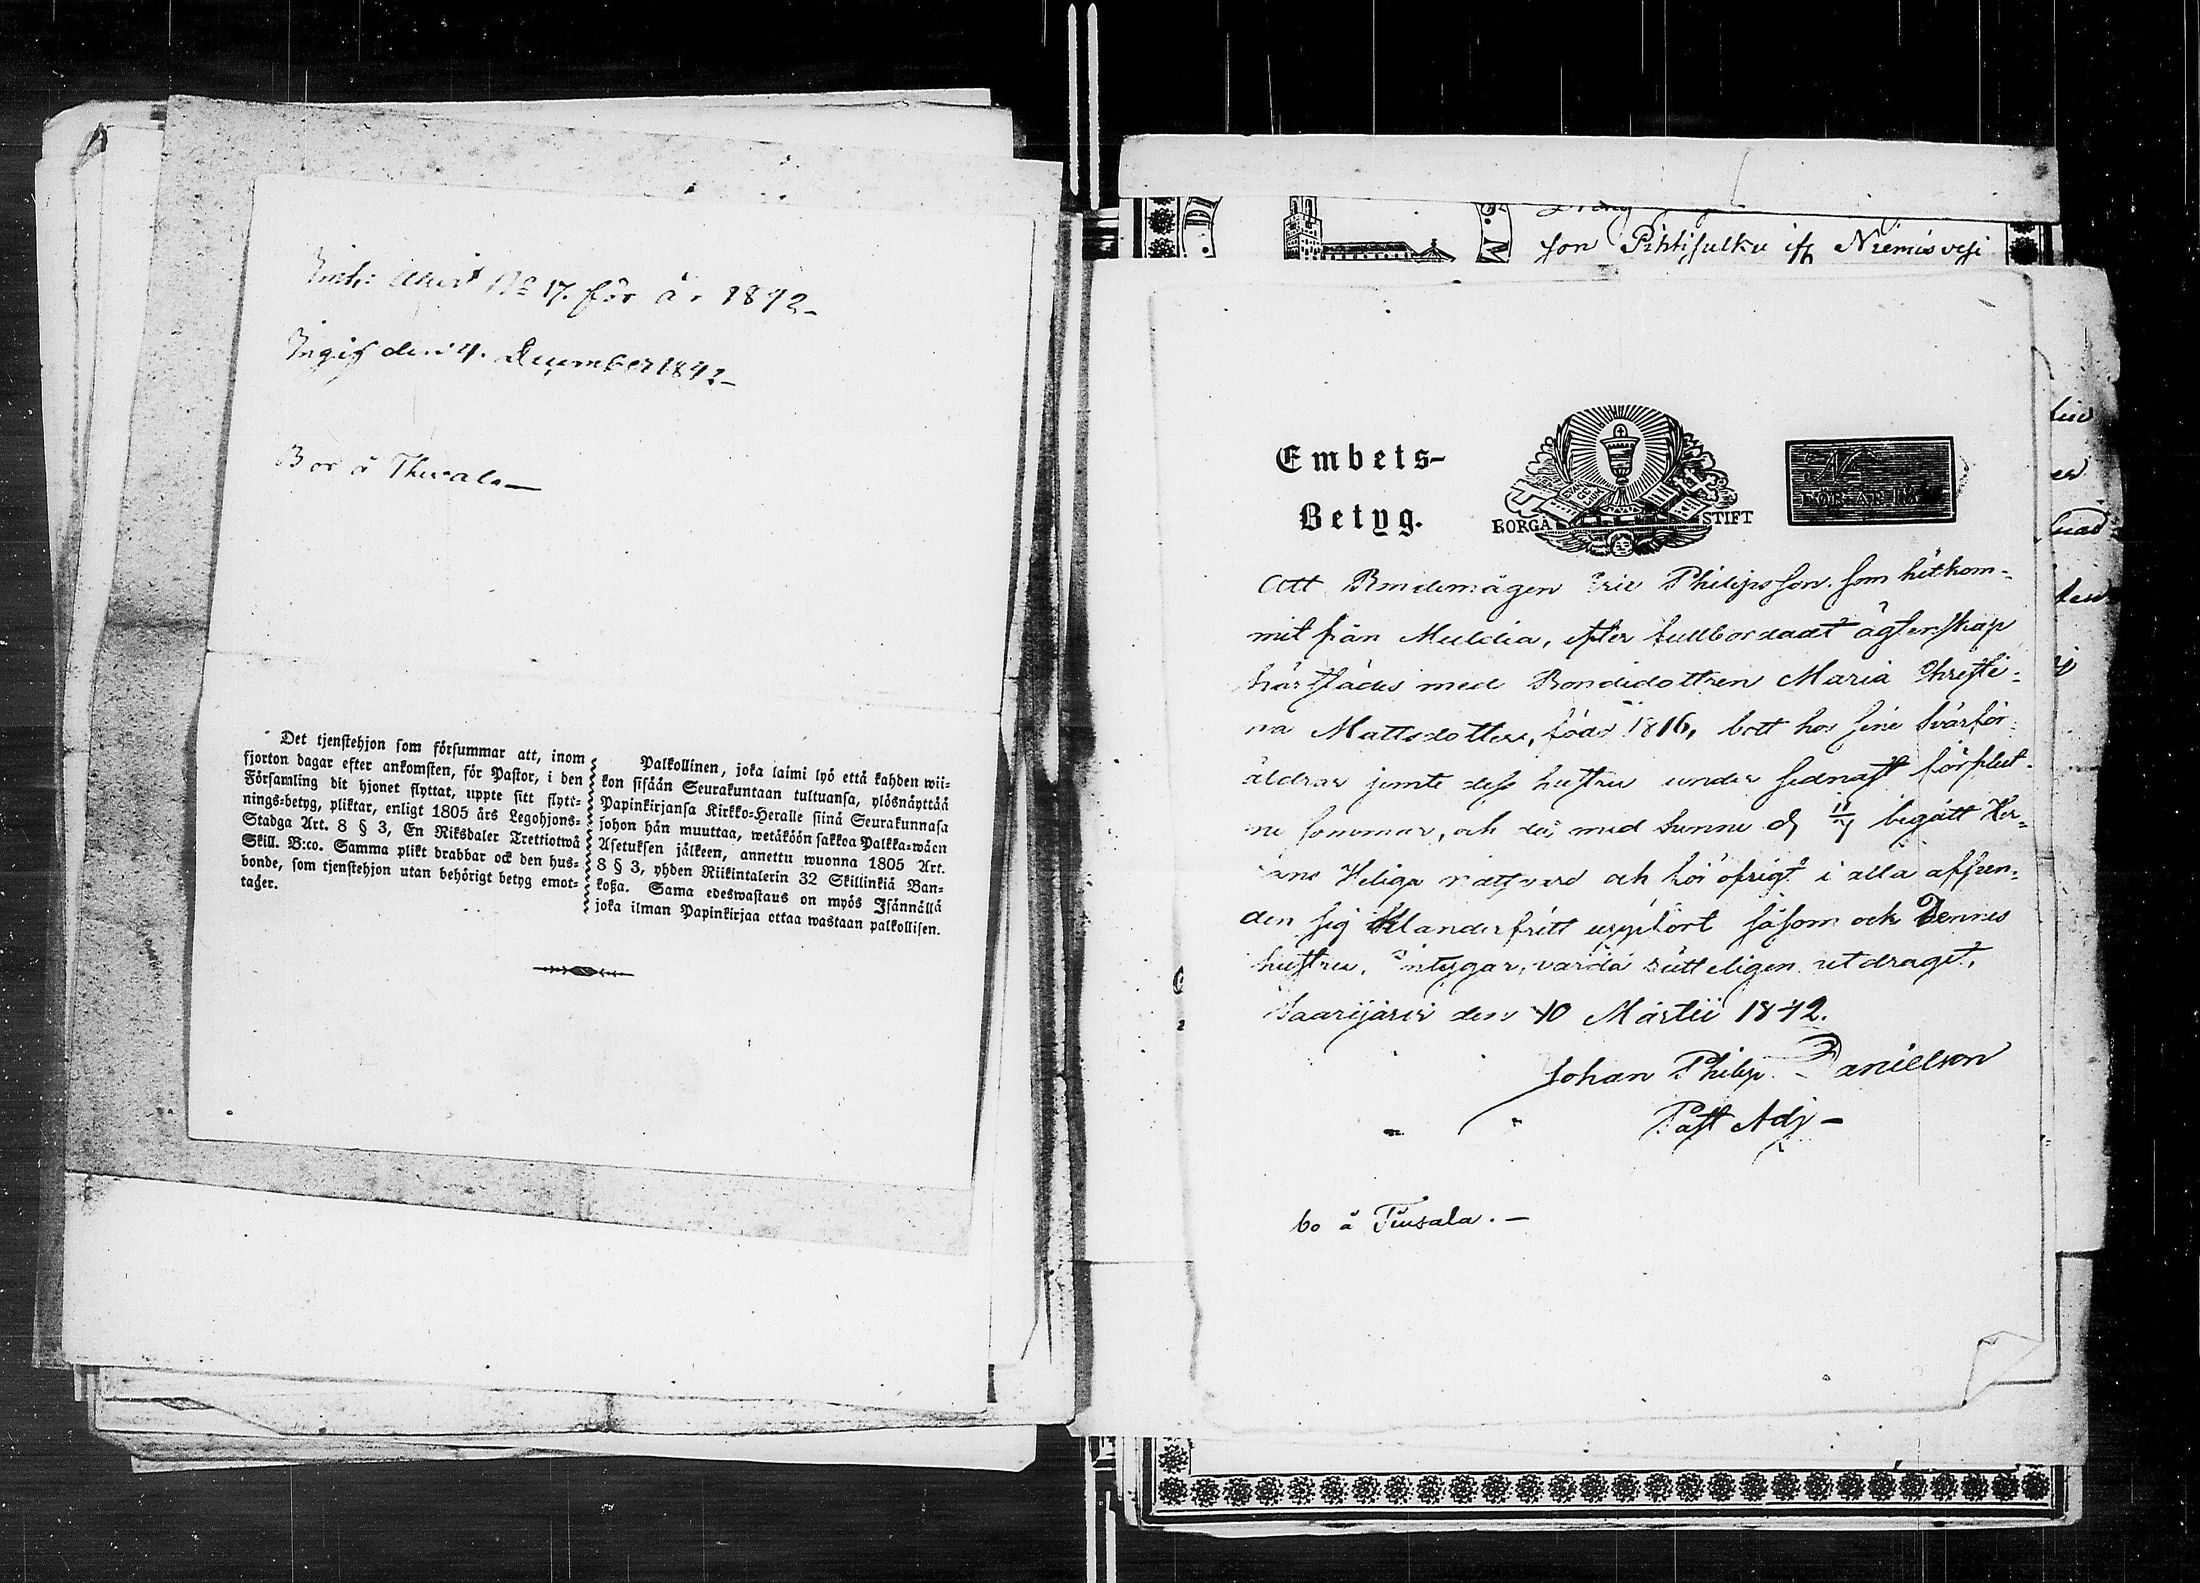 No 17. för år 1842-
Ingif den 4. December 1842-
Bor å Thusala-
Det tjenstehjon som försummar att, inom
fjorton dagar efter ankomsten, för Pastor, i den
Församling dit hjonet flyttat, uppte sitt flytt-
nings-betyg, pliktar, enligt 1805 års Legohjons-
Stadga Art. 8 § 3, En Riksdaler Trettiotwå
Skill. B:co. Samma plikt drabbar ock den hus-
bonde, som tjenstehjon utan behörigt betyg emot-
tager.
Palkollinen, joka laimi lyö että kahden wii-
kon sisään Seurakuntaan tultuansa, ylösnäyttää
Papinkirjansa Kirkko-Heralle siinä Seurakunnasa
johon hän muuttaa, wetäköön sakkoa Palkka-wäen
Asetuksen jälkeen, annettu wuonna 1805 Art.
8 § 3, yhden Riikintalerin 32 Skillinkiä Ban-
koßa. Sama edeswastaus on myös Isännällä
joka ilman Papinkirjaa ottaa wastaan palkollisen.
son Pihtisulku if Niemisvesi
Embets-
Betyg.
BORGÅ STIFT
EVANGELIUM
N
FÖR ÅR 18
Att Bondemågen Eric Philipsson som hitkom-
mit från Muldia, efter fullbordadt ägtenskap
härstädes med Bondedottren Maria Christi-
na Mattsdotter, född 1816, bott hos sine Svärför-
äldrar jemte dess hustru under sednast förflut-
ne sommar, och då med henne d begått Her-
rans Heliga nattvard och för öfrigt i alla afseen-
den sig klanderfritt uppfört såsom ock Dennes
hustru, intygar, varda rätteligen utdraget,
Saarijärvi den 10 Martii 1842.
Johan Philip Danielson
Past Adj-
bo å Tiusala.-